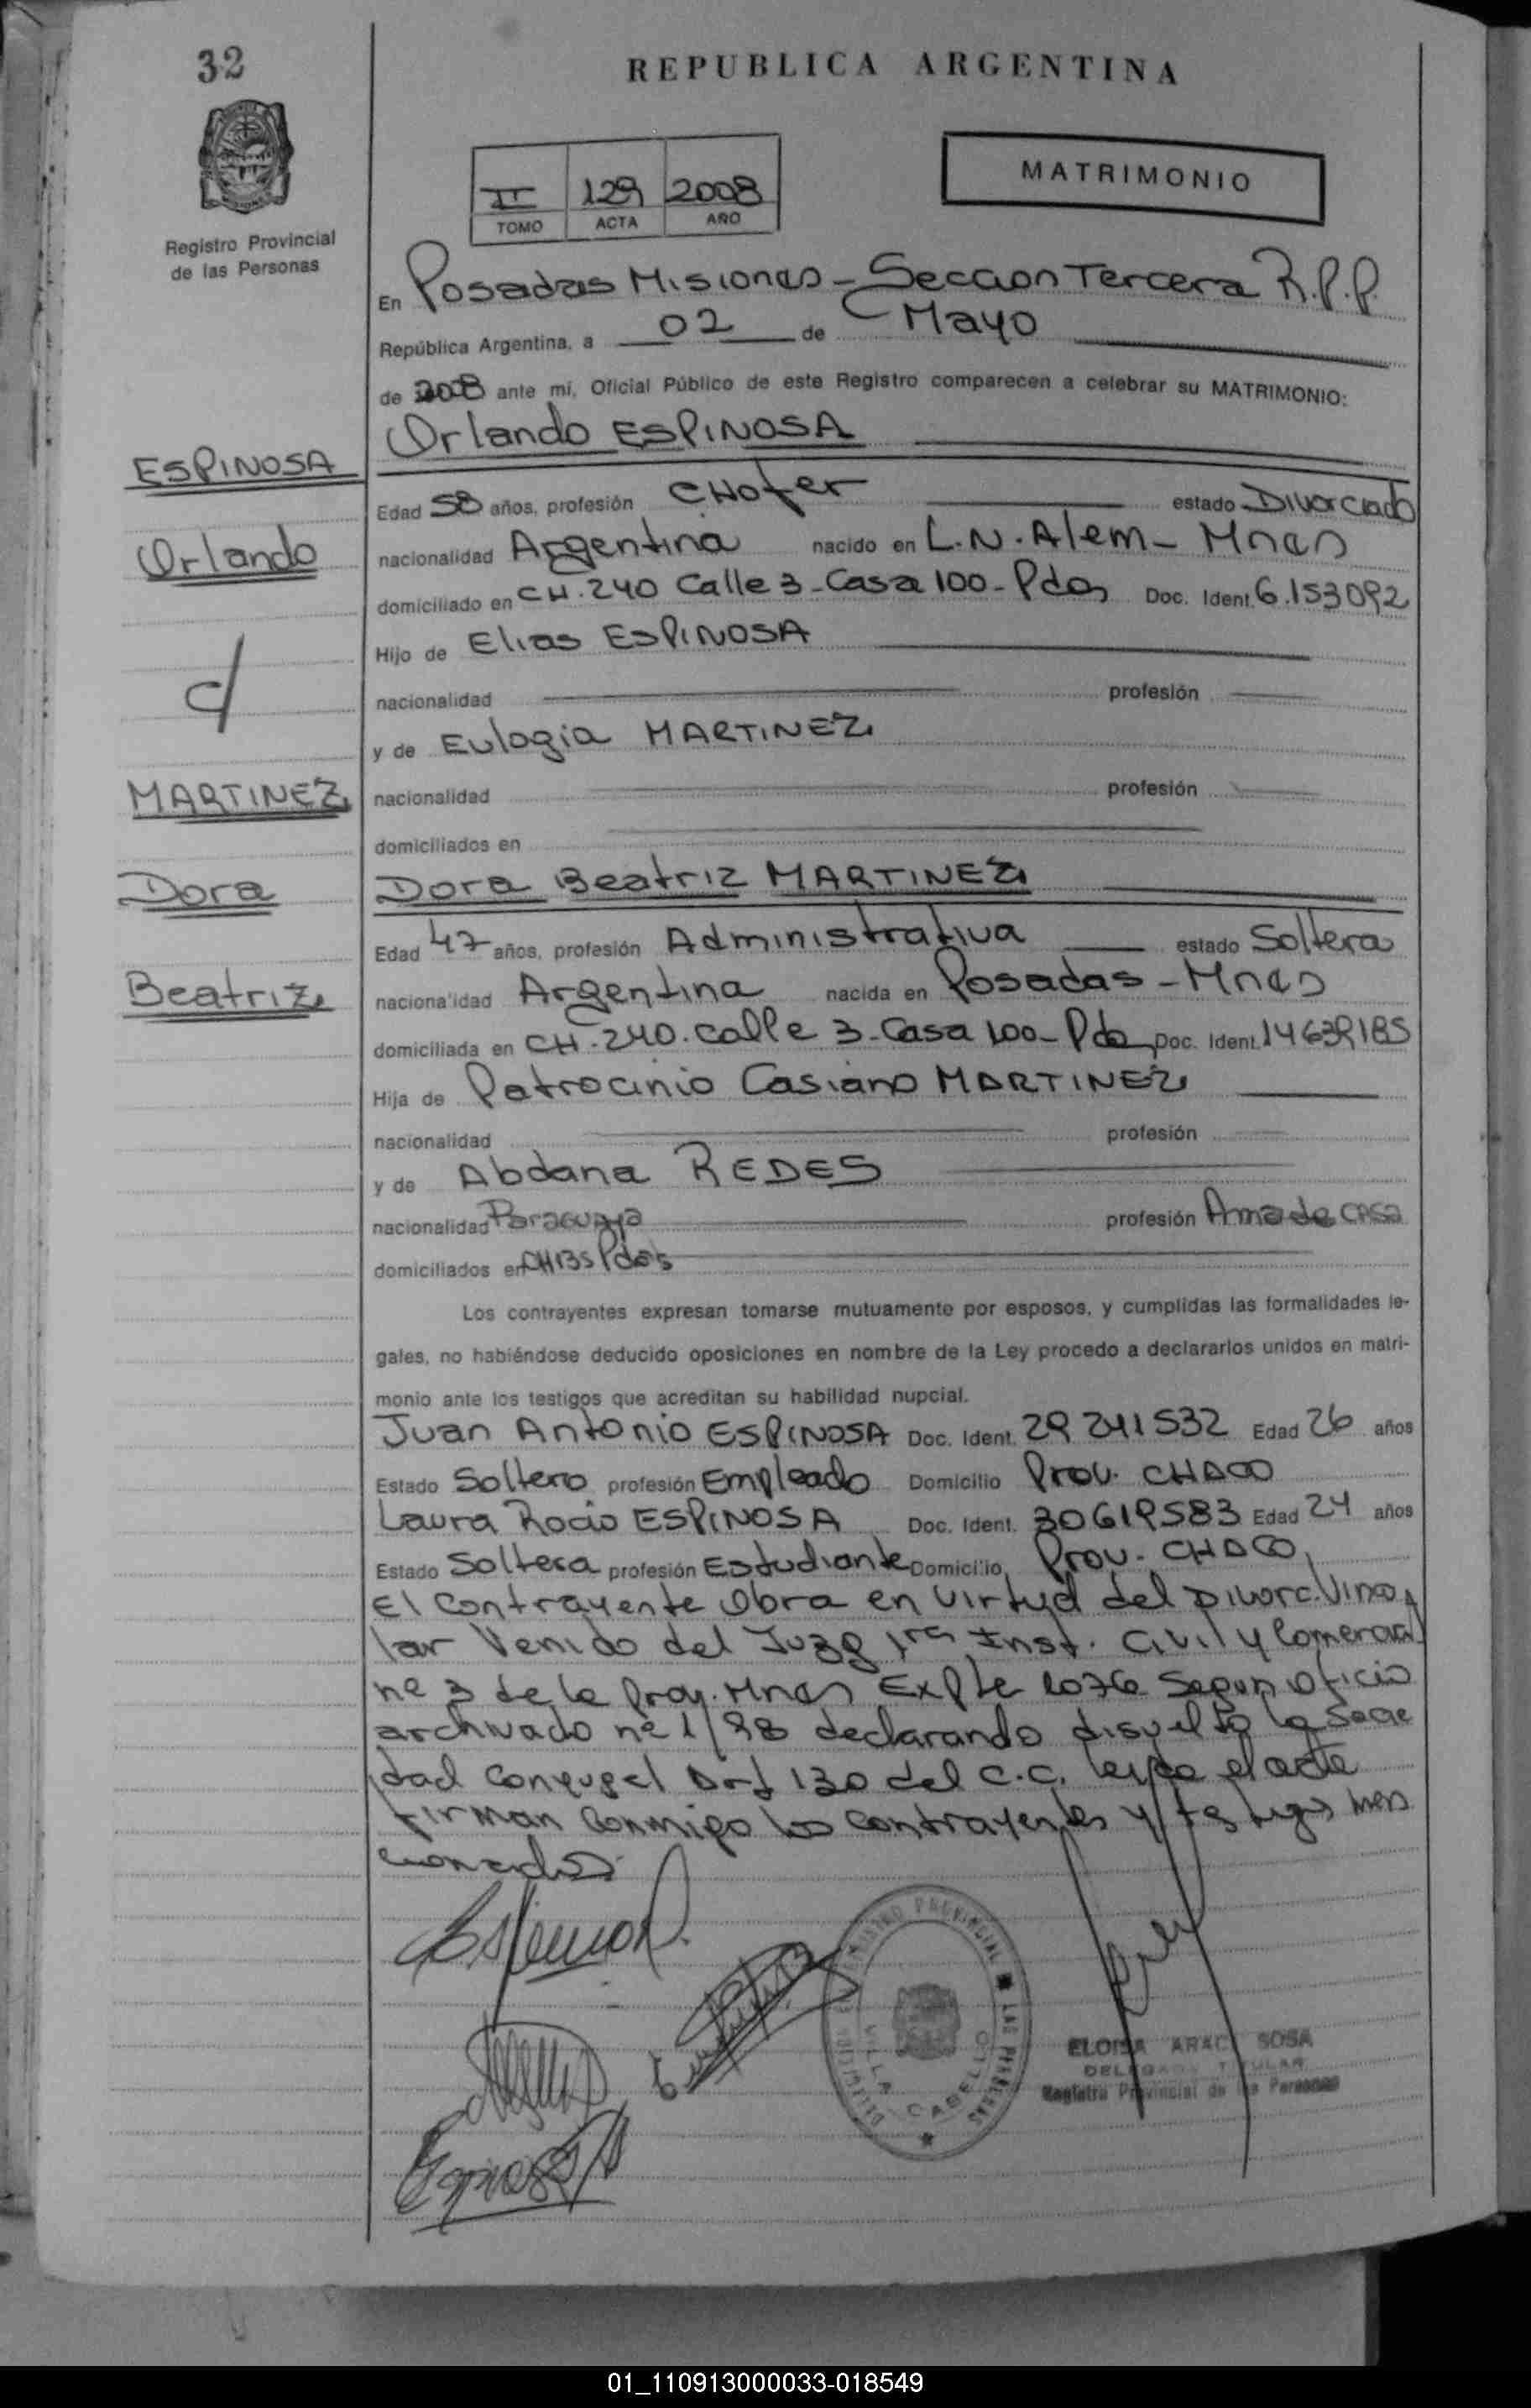 32
REPUBLICA ARGENTINA
II 129 2008
TOMO ACTA AÑO
MATRIMONIO
Registro Provincial
de las Personas
En Posadas Misiones - Seccion Tercera R.P.P.
República Argentina, a 02 de Mayo
de 2008 ante mí, Oficial Público de este Registro comparecen a celebrar su MATRIMONIO:
Orlando ESPINOSA
ESPINOSA
Edad 58 años, profesión CHofer estado Divorciado
Orlando
nacionalidad Argentina nacido en L.N. Alem - Mnes
domiciliado en CH. 240 Calle 3 - Casa 100 - Pdas Doc. Ident. 6.153092
Hijo de Elias ESPINOSA
c/
nacionalidad profesión
y de Eulogia MARTINEZ
MARTINEZ
nacionalidad profesión
domiciliados en
Dora
Dora Beatriz MARTINEZ
Edad 47 años, profesión Administrativa estado Soltera
Beatriz
nacionalidad Argentina nacida en Posadas - Mnes
domiciliada en CH. 240. calle 3 - Casa 100 - Pdas Doc. Ident. 14639185
Hija de Patrocinio Casiano MARTINEZ
nacionalidad profesión
y de Abdana REDES
nacionalidad Paraguaya profesión Ama de casa
domiciliados en CH135 Pdas
Los contrayentes expresan tomarse mutuamente por esposos, y cumplidas las formalidades le-
gales, no habiéndose deducido oposiciones en nombre de la Ley procedo a declararlos unidos en matri-
monio ante los testigos que acreditan su habilidad nupcial.
Juan Antonio ESPINOSA Doc. Ident. 29 241532 Edad 26 años
Estado Soltero profesión Empleado Domicilio Prov. CHACO
Laura Rocio ESPINOSA Doc. Ident. 30619583 Edad 24 años
Estado Soltera profesión Estudiante Domicilio Prov. CHACO,
El contrayente obra en virtud del Divorc. Vincu
lar Venido del Juzg 1ra Inst. Civil y Comercial
nº 3 de la Prov. Mnes Expte 1076 Segun oficio
archivado nº 1/98 declarando disuelto la Socie
dad Conyugal Art 130 del C.C. leida el acta
firman conmigo los contrayentes y testigos men
cionados
REGISTRO PROVINCIAL DE LAS PERSONAS
VILLA CABELLO
ELOISA ARACI SOSA
DELEGADA TITULAR
Registro Provincial de las Personas
01_110913000033-018549